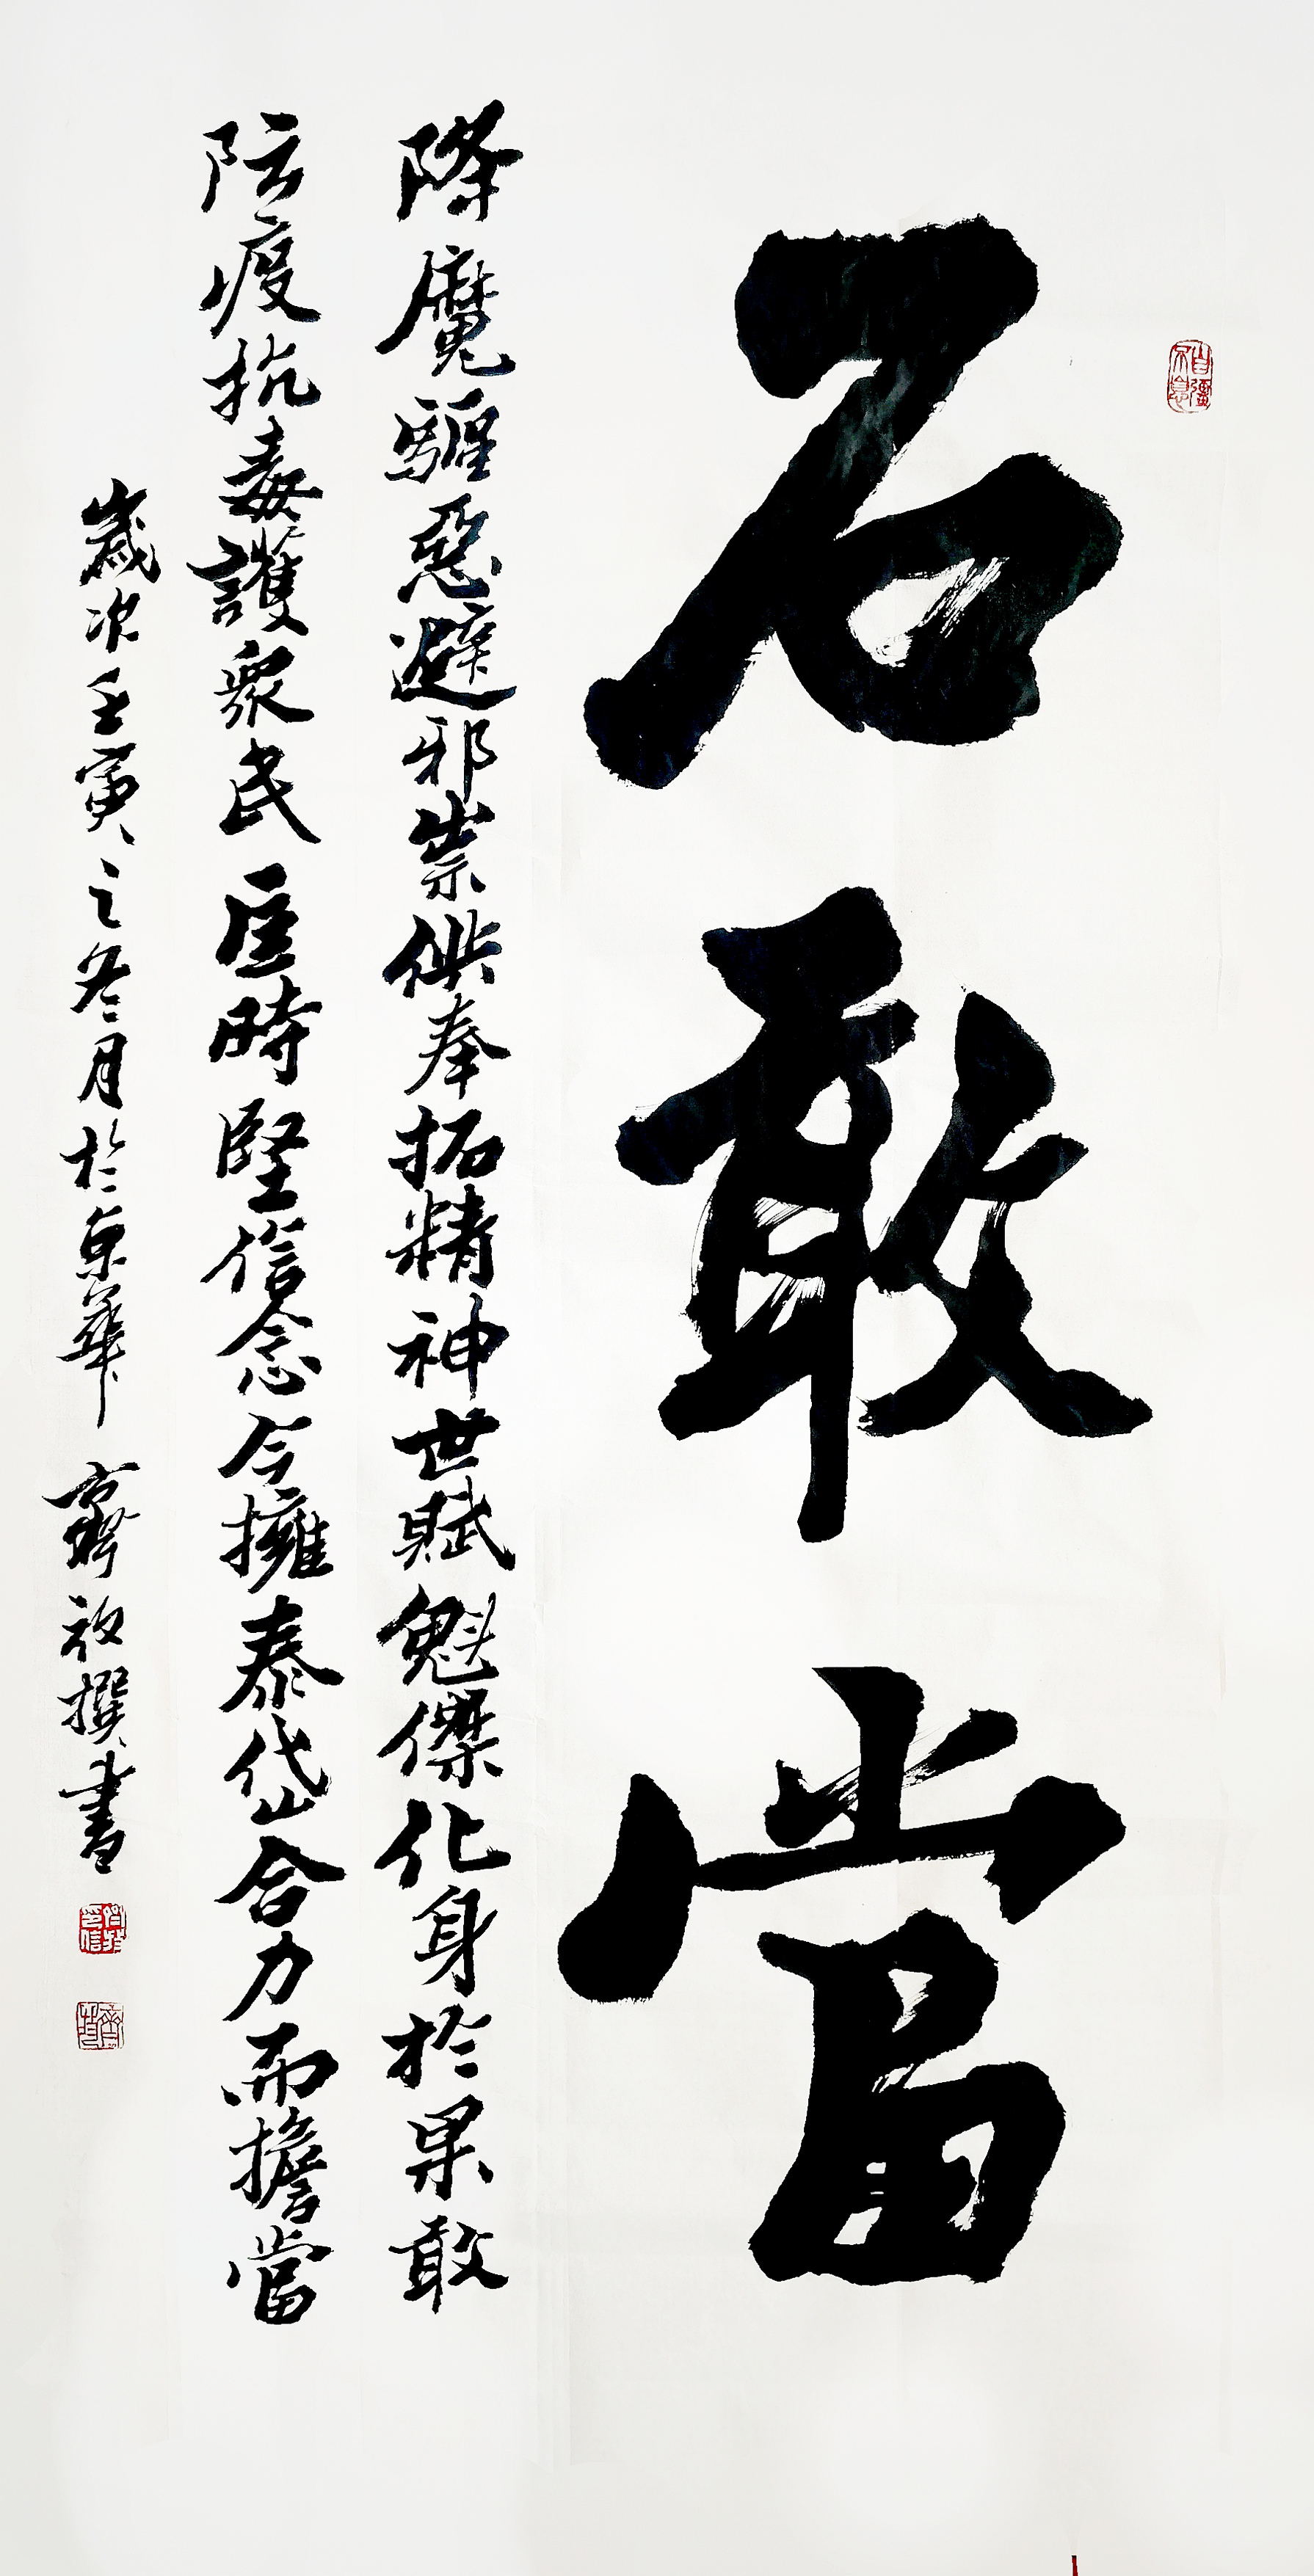 自彊不息
石敢當
降魔驅惡避邪祟供奉拓精神世賦魁傑化身於果敢
防疫抗毒護衆民匡時堅信念今擁泰岱合力而擔當
歲次壬寅之冬月於京華 齊放撰書